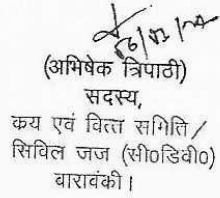 (अभिषेक त्रिपाठी)
सदस्य,
कय एवं वित्त समिति /
सिविल जज (सी0डिवी0)
बाराबंकी।